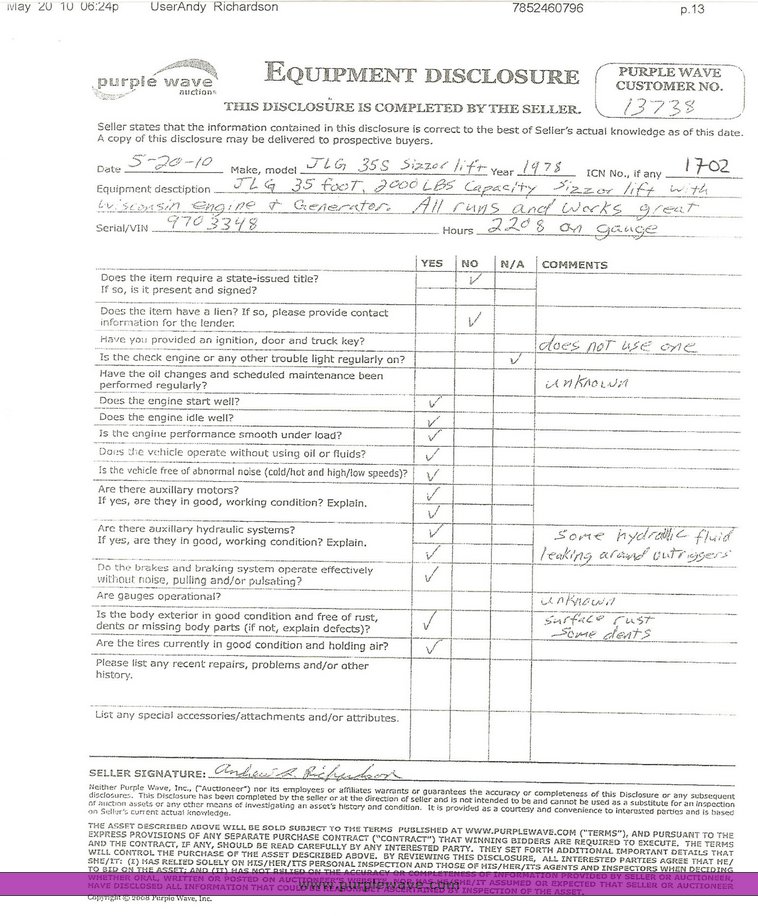 May 20 10 06:24p UserAndy Richardson 7852460796 p.13
purple wave
auctions
EQUIPMENT DISCLOSURE
THIS DISCLOSURE IS COMPLETED BY THE SELLER.
PURPLE WAVE
CUSTOMER NO.
13738
Seller states that the information contained in this disclosure is correct to the best of Seller's actual knowledge as of this date.
A copy of this disclosure may be delivered to prospective buyers.
Date 5-20-10 Make, model JLG 35S Sizzor lift Year 1978 ICN No., if any 1702
Equipment desctiption JLG 35 foot, 2000 LBS Capacity Sizzor lift with
Wisconsin engine + Generator. All runs and works great
Serial/VIN 9703348 Hours 2208 on gauge
YES NO N/A COMMENTS
Does the item require a state-issued title? ✓
If so, is it present and signed?
Does the item have a lien? If so, please provide contact
information for the lender. ✓
Have you provided an ignition, door and truck key? does not use one
Is the check engine or any other trouble light regularly on? ✓
Have the oil changes and scheduled maintenance been
performed regularly? unknown
Does the engine start well? ✓
Does the engine idle well? ✓
Is the engine performance smooth under load? ✓
Does the vehicle operate without using oil or fluids? ✓
Is the vehicle free of abnormal noise (cold/hot and high/low speeds)? ✓
Are there auxillary motors? ✓
If yes, are they in good, working condition? Explain. ✓
Are there auxillary hydraulic systems? ✓ Some hydrallic fluid
If yes, are they in good, working condition? Explain. ✓ leaking around outriggers
Do the brakes and braking system operate effectively
without noise, pulling and/or pulsating? ✓
Are gauges operational? unknown
Is the body exterior in good condition and free of rust, ✓ surface rust
dents or missing body parts (if not, explain defects)? some dents
Are the tires currently in good condition and holding air? ✓
Please list any recent repairs, problems and/or other
history.
List any special accessories/attachments and/or attributes.
SELLER SIGNATURE: Andrew R. Richardson
Neither Purple Wave, Inc., ("Auctioneer") nor its employees or affiliates warrants or guarantees the accuracy or completeness of this Disclosure or any subsequent
disclosures. This Disclosure has been completed by the seller or at the direction of seller and is not intended to be and cannot be used as a substitute for an inspection
of auction assets or any other means of investigating an asset's history and condition. It is provided as a courtesy and convenience to interested parties and is based
on Seller's current actual knowledge.
THE ASSET DESCRIBED ABOVE WILL BE SOLD SUBJECT TO THE TERMS PUBLISHED AT WWW.PURPLEWAVE.COM ("TERMS"), AND PURSUANT TO THE
EXPRESS PROVISIONS OF ANY SEPARATE PURCHASE CONTRACT ("CONTRACT") THAT WINNING BIDDERS ARE REQUIRED TO EXECUTE. THE TERMS
AND THE CONTRACT, IF ANY, SHOULD BE READ CAREFULLY BY ANY INTERESTED PARTY. THEY SET FORTH ADDITIONAL IMPORTANT DETAILS THAT
WILL CONTROL THE PURCHASE OF THE ASSET DESCRIBED ABOVE. BY REVIEWING THIS DISCLOSURE, ALL INTERESTED PARTIES AGREE THAT HE/
SHE/IT: (I) HAS RELIED SOLELY ON HIS/HER/ITS PERSONAL INSPECTION AND THOSE OF HIS/HER/ITS AGENTS AND INSPECTORS WHEN DECIDING
TO BID ON THE ASSET; AND (II) HAS NOT RELIED ON THE ACCURACY OR COMPLETENESS OF INFORMATION PROVIDED BY SELLER OR AUCTIONEER,
WHETHER ORAL, WRITTEN OR POSTED ON AUCTIONEER'S WEBSITE, NOR HAS HE/SHE/IT ASSUMED OR EXPECTED THAT SELLER OR AUCTIONEER
HAVE DISCLOSED ALL INFORMATION THAT COULD BE REASONABLY ASCERTAINED BY INSPECTION OF THE ASSET.
www.purplewave.com
Copyright © 2008 Purple Wave, Inc.